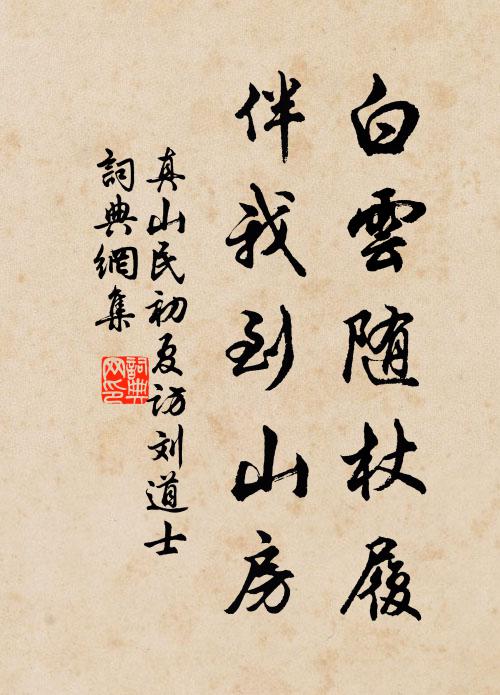 白雲随杖履
伴我到山房
真山民初夏访刘道士
詞典網集
詞典网印